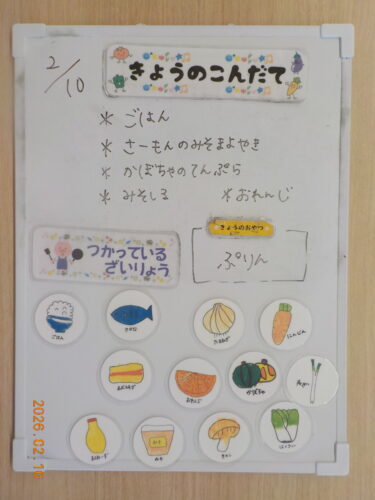 2/10
きょうのこんだて
* ごはん
* さーもんのみそまよやき
* かぼちゃのてんぷら
* みそしる * おれんじ
きょうのおやつ
ぷりん
つかっている
ざいりょう
ごはん
さかな
たまねぎ
にんじん
おれんじ
かぼちゃ
ねぎ
みそ
きのこ
はくさい
2026.02.10